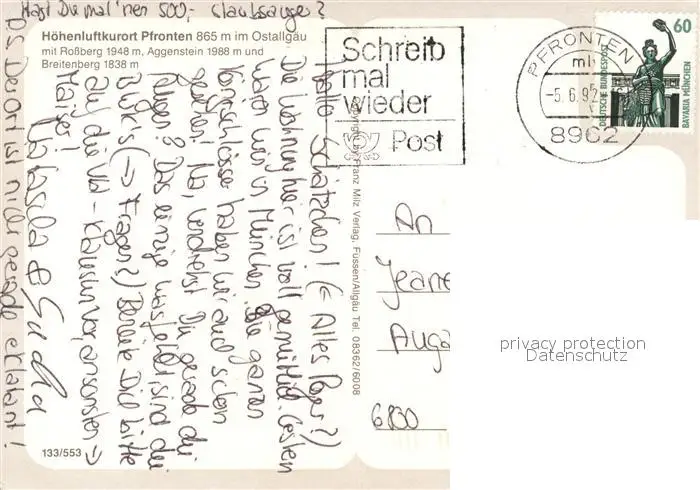 Hast Du mal 'nen 500,-
Höhenluftkurort Pfronten 865 m im Ostallgäu
mit Roßberg 1948 m, Aggenstein 1988 m und
Breitenberg 1838 m
Hallo Schätzchen! (← Alles Roger?)
Die Wohnung hier ist voll gemütlich. Gestern
waren wir in München. Die ganzen
Königsschlösser haben wir auch schon
gesehen! Na, verdrehst Du gerade die
Augen? Das einzige was fehlt sind die
(→ Fragen?) Bereite Dich bitte
auf die vor, ansonsten →
Maiser!
& Sudha
PS Der Ort ist hier gerade eklatant!
133/553
Schreib
mal
wieder
Post
PFRONTEN
mb
-5.6.92
8962
60
DEUTSCHE BUNDESPOST
BAVARIA MÜNCHEN
Copyright by Franz Milz Verlag, Füssen/Allgäu Tel. 08362/6008
An
Jeane
Auga
6800
privacy protection
Datenschutz